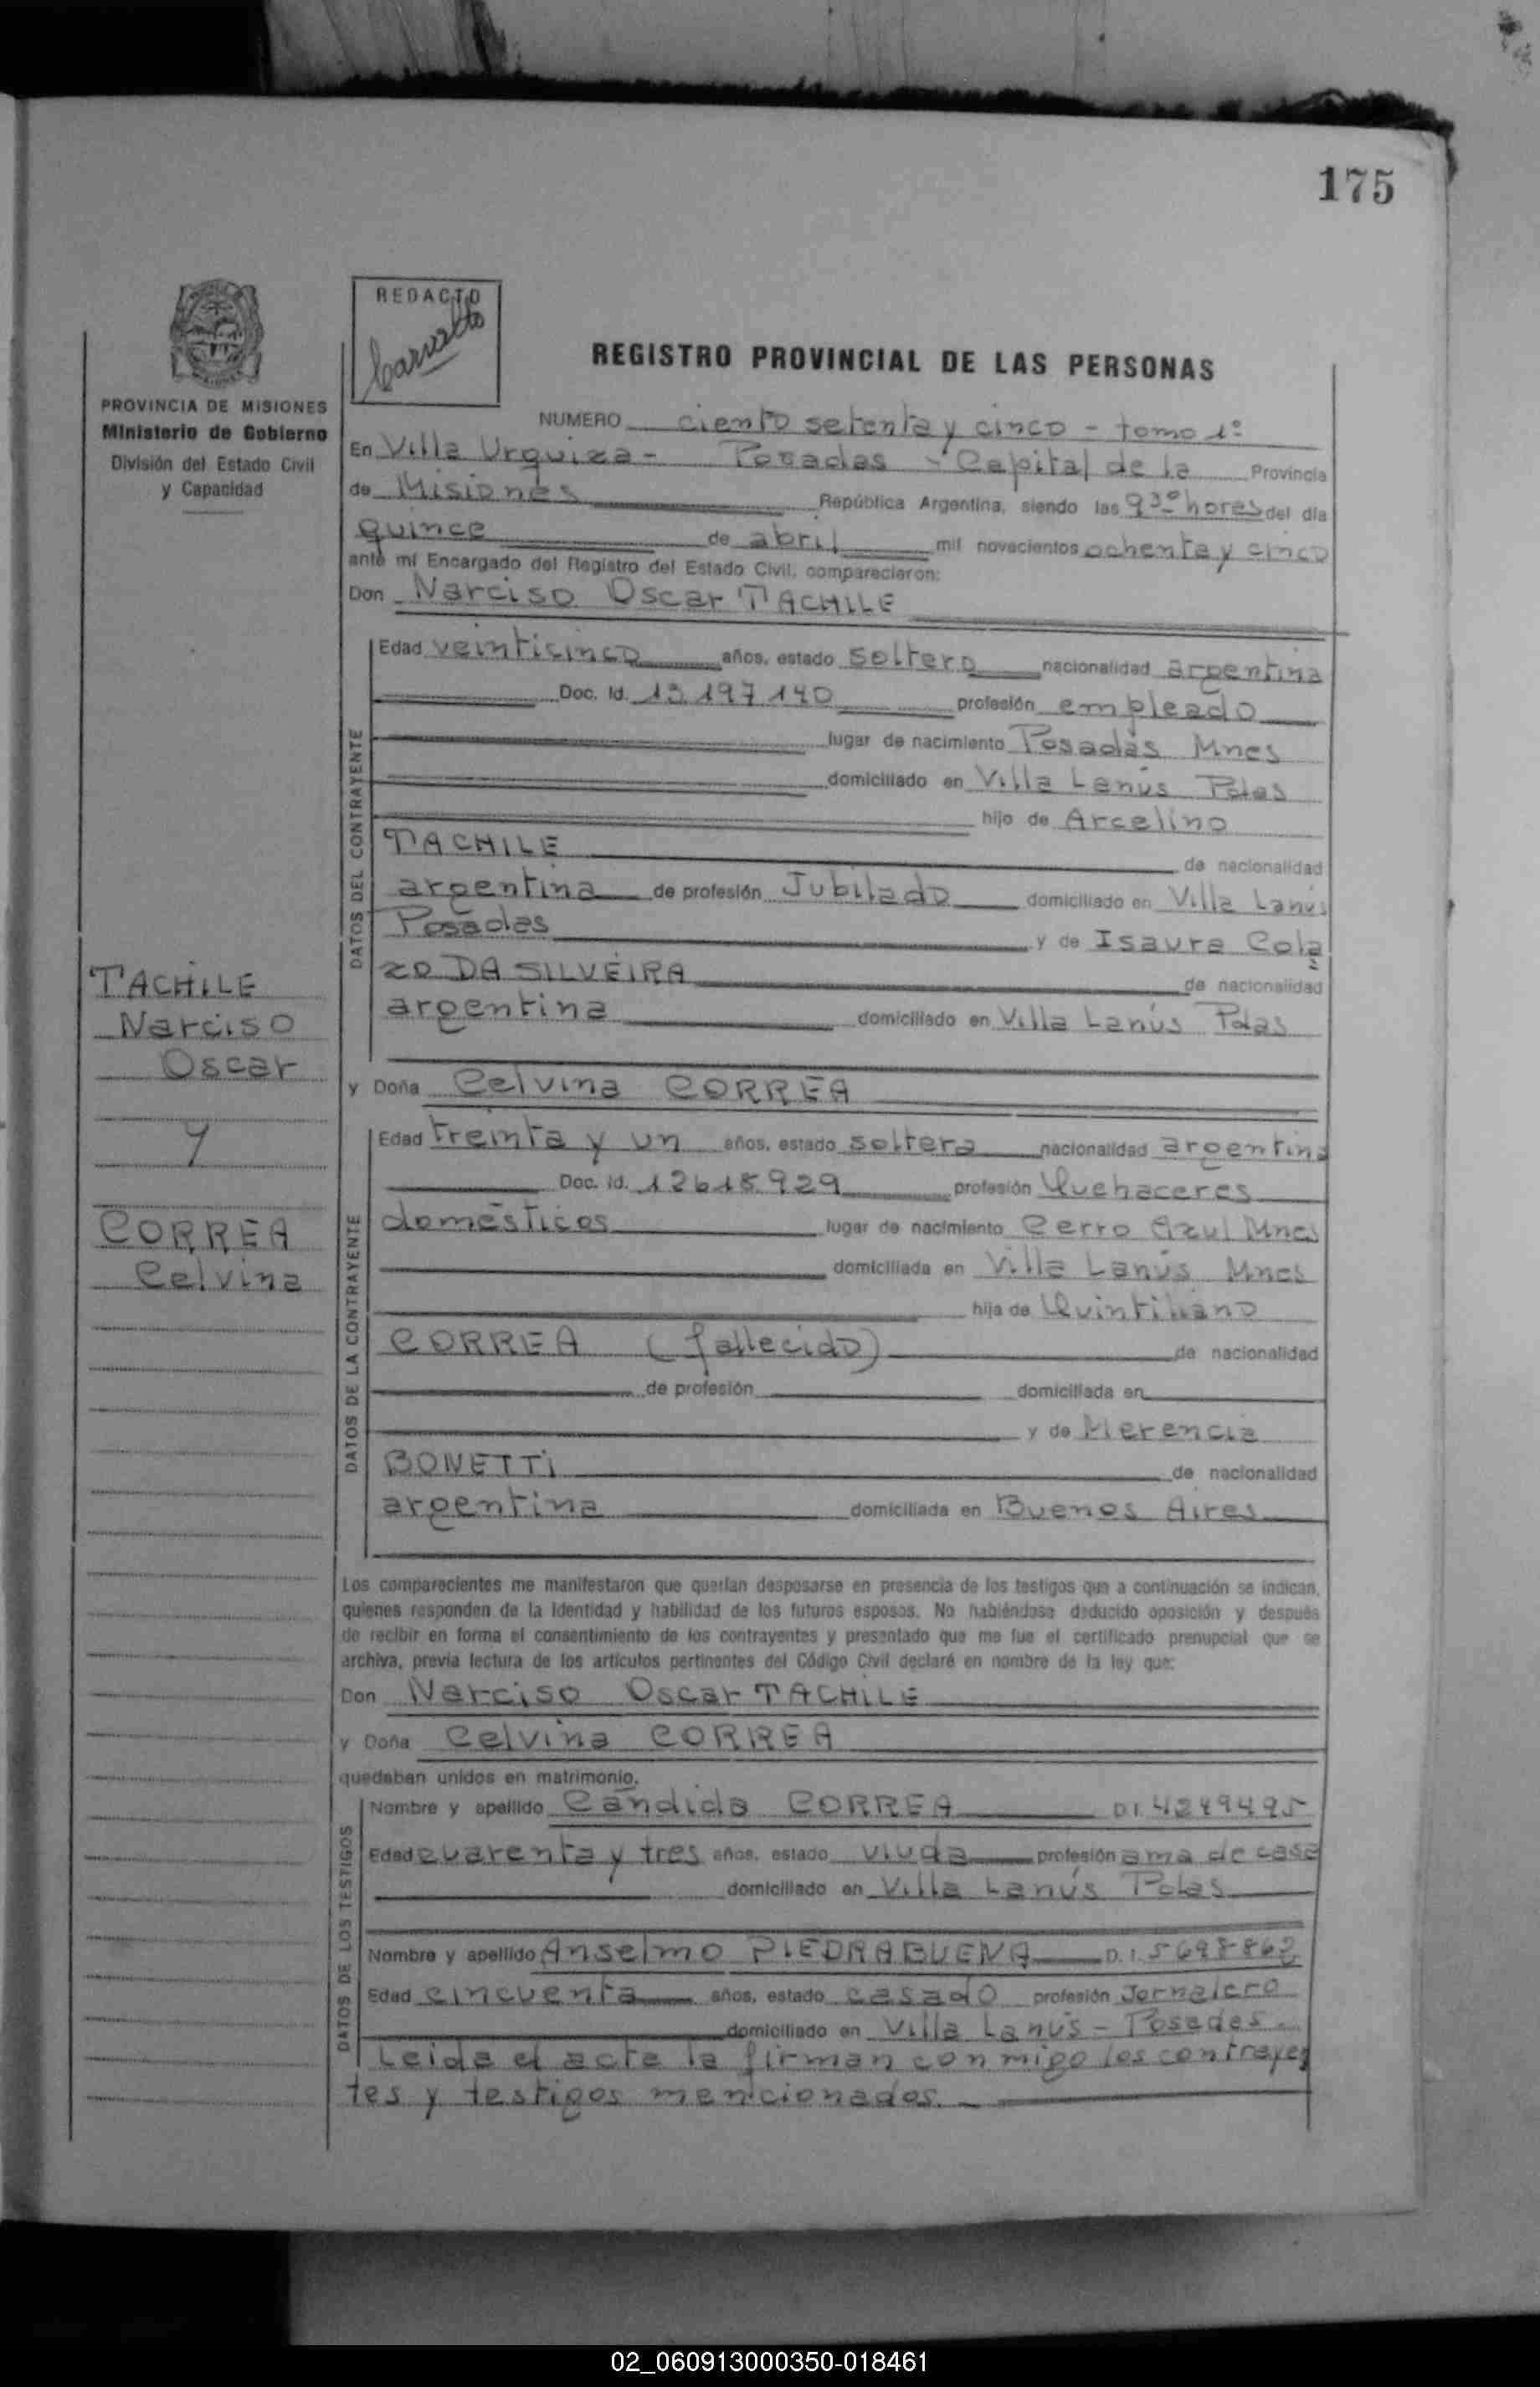 175
REDACTO
REGISTRO PROVINCIAL DE LAS PERSONAS
PROVINCIA DE MISIONES
Ministerio de Gobierno
División del Estado Civil
y Capacidad
NUMERO ciento setenta y cinco - tomo 1º
En Villa Urquiza - Posadas - Capital de la Provincia
de Misiones República Argentina, siendo las 9 30 horas del día
quince de abril mil novecientos ochenta y cinco
ante mí Encargado del Registro del Estado Civil, comparecieron:
Don Narciso Oscar TACHILE
DATOS DEL CONTRAYENTE
Edad veinticinco años, estado soltero nacionalidad argentina
Doc. Id. 13.197.140 profesión empleado
lugar de nacimiento Posadas Mnes
domiciliado en Villa Lanús Pdas
hijo de Arcelino
TACHILE de nacionalidad
argentina de profesión Jubilado domiciliado en Villa Lanús
Posadas y de Isaura Cola
zo DA SILVEIRA de nacionalidad
argentina domiciliado en Villa Lanús Pdas
TACHILE
Narciso
Oscar
y
CORREA
Celvina
y Doña Celvina CORREA
DATOS DE LA CONTRAYENTE
Edad treinta y un años, estado soltera nacionalidad argentina
Doc. Id. 12.615.929 profesión Quehaceres
domésticos lugar de nacimiento Cerro Azul Mnes
domiciliada en Villa Lanús Mnes
hija de Quintiliano
CORREA (fallecido) de nacionalidad
de profesión domiciliada en
y de Merencia
BONETTI de nacionalidad
argentina domiciliada en Buenos Aires
Los comparecientes me manifestaron que querían desposarse en presencia de los testigos que a continuación se indican,
quienes responden de la identidad y habilidad de los futuros esposos. No habiéndose deducido oposición y después
de recibir en forma el consentimiento de los contrayentes y presentado que me fue el certificado prenupcial que se
archiva, previa lectura de los artículos pertinentes del Código Civil declaré en nombre de la ley que:
Don Narciso Oscar TACHILE
y Doña Celvina CORREA
quedaban unidos en matrimonio.
DATOS DE LOS TESTIGOS
Nombre y apellido Cándida CORREA D.I. 4249495
Edad cuarenta y tres años, estado viuda profesión ama de casa
domiciliado en Villa Lanús Pdas
Nombre y apellido Anselmo PIEDRABUENA D.I. 5698862
Edad cincuenta años, estado casado profesión Jornalero
domiciliado en Villa Lanús - Posadas.
Leida el acta la firman conmigo los contrayen
tes y testigos mencionados.
02_060913000350-018461